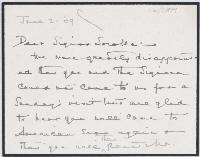 June 2-09
Dear Signor Sorolla:
We were greatly disappointed
that you and the Signora
could not come to us for a
Sunday's visit but are glad
to hear you will come to
America again
that you will